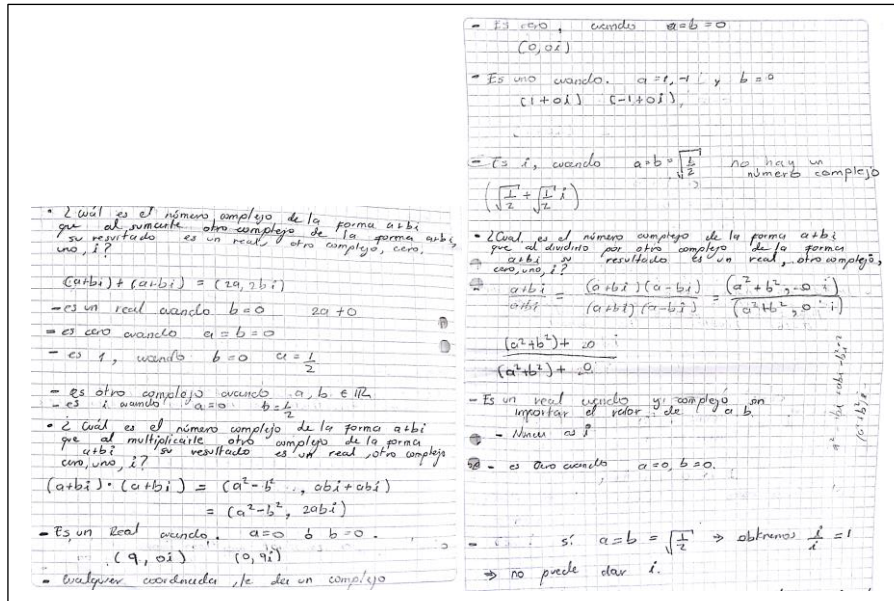 • ¿Cuál es el número complejo de la forma a+bi
que al sumarle otro complejo de la forma a+bi,
su resultado es un real, otro complejo, cero,
uno, i?
(a+bi) + (a+bi) = (2a, 2bi)
- es un real cuando b=0 2a+0
- es cero cuando a = b = 0
- es 1, cuando b=0 a=1/2
- es otro complejo cuando a, b ∈ ℝ
- es i cuando a=0 b=1/2
• ¿Cuál es el número complejo de la forma a+bi
que al multiplicarle otro complejo de la forma
a+bi su resultado es un real, otro complejo
cero, uno, i?
(a+bi)·(a+bi) = (a²-b², abi+abi)
= (a²-b², 2abi)
- Es un Real cuando. a=0 ó b=0.
(9, 0i) (0, 9i)
- Cualquier coordenada, le da un complejo
- Es cero, cuando a=b=0
(0,0i)
- Es uno cuando. a=1,-1 y b=0
(1+0i) (-1+0i),
- Es i, cuando a=b=√1/2 no hay un
número complejo
(√1/2 + √1/2 i)
• ¿Cual es el número complejo de la forma a+bi
que al dividirlo por otro complejo de la forma
a+bi su resultado es un real, otro complejo,
cero, uno, i?
- a+bi/a+bi = (a+bi)(a-bi)/(a+bi)(a-bi) = (a²+b², 0 i)/(a²+b², 0 i)
(a²+b²)+ 0 i
(a²+b²)+ 0
- Es un real cuando y complejo sin
importar el valor de a b.
- Nunca es i
- es Cero cuando a=0, b=0.
- si a=b=√1/2 ⇒ obtenemos i/i = 1
⇒ no puede dar i.